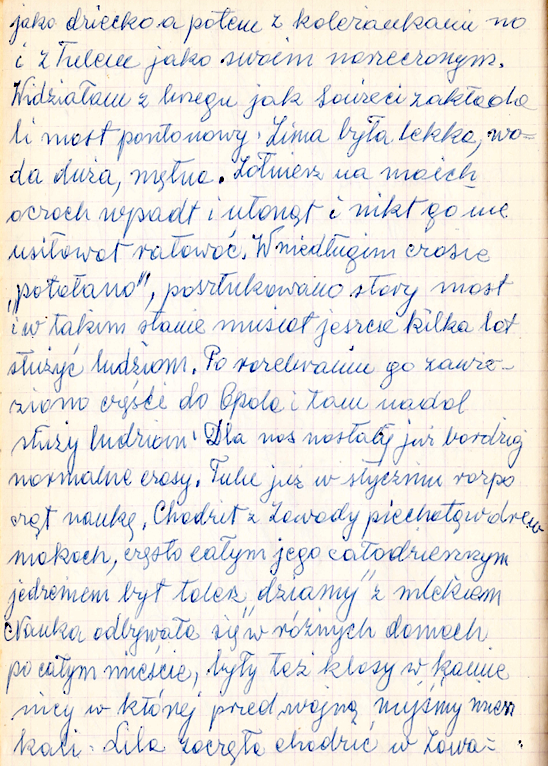 jako dziecko a potem z koleżankami no
i z Tulem jako swoim narzeczonym.
Widziałam z brzegu jak Sowieci zakłada
li most pontonowy. Zima była lekka, wo=
da duża, mętna. Żołnierz na moich
oczach wpadł i utonął i nikt go nie
usiłował ratować. W niedługim czasie
"połatano", posztukowano stary most
i w takim stanie musiał jeszcze kilka lat
służyć ludziom. Po rozebraniu go zawie-
ziono części do Opola i tam nadal
służy ludziom. Dla nas nastały już bardziej
normalne czasy. Tulu już w styczniu rozpo
czął naukę. Chodził z Zawady piechotą w drew
niakach, często całym jego całodziennym
jedzeniem był talerz "dziamy" z mlekiem
Nauka odbywała się w różnych domach
po całym mieście, były też klasy w kamie
nicy w której przed wojną myśmy miesz
kali. Lila zaczęła chodzić w Zawa=